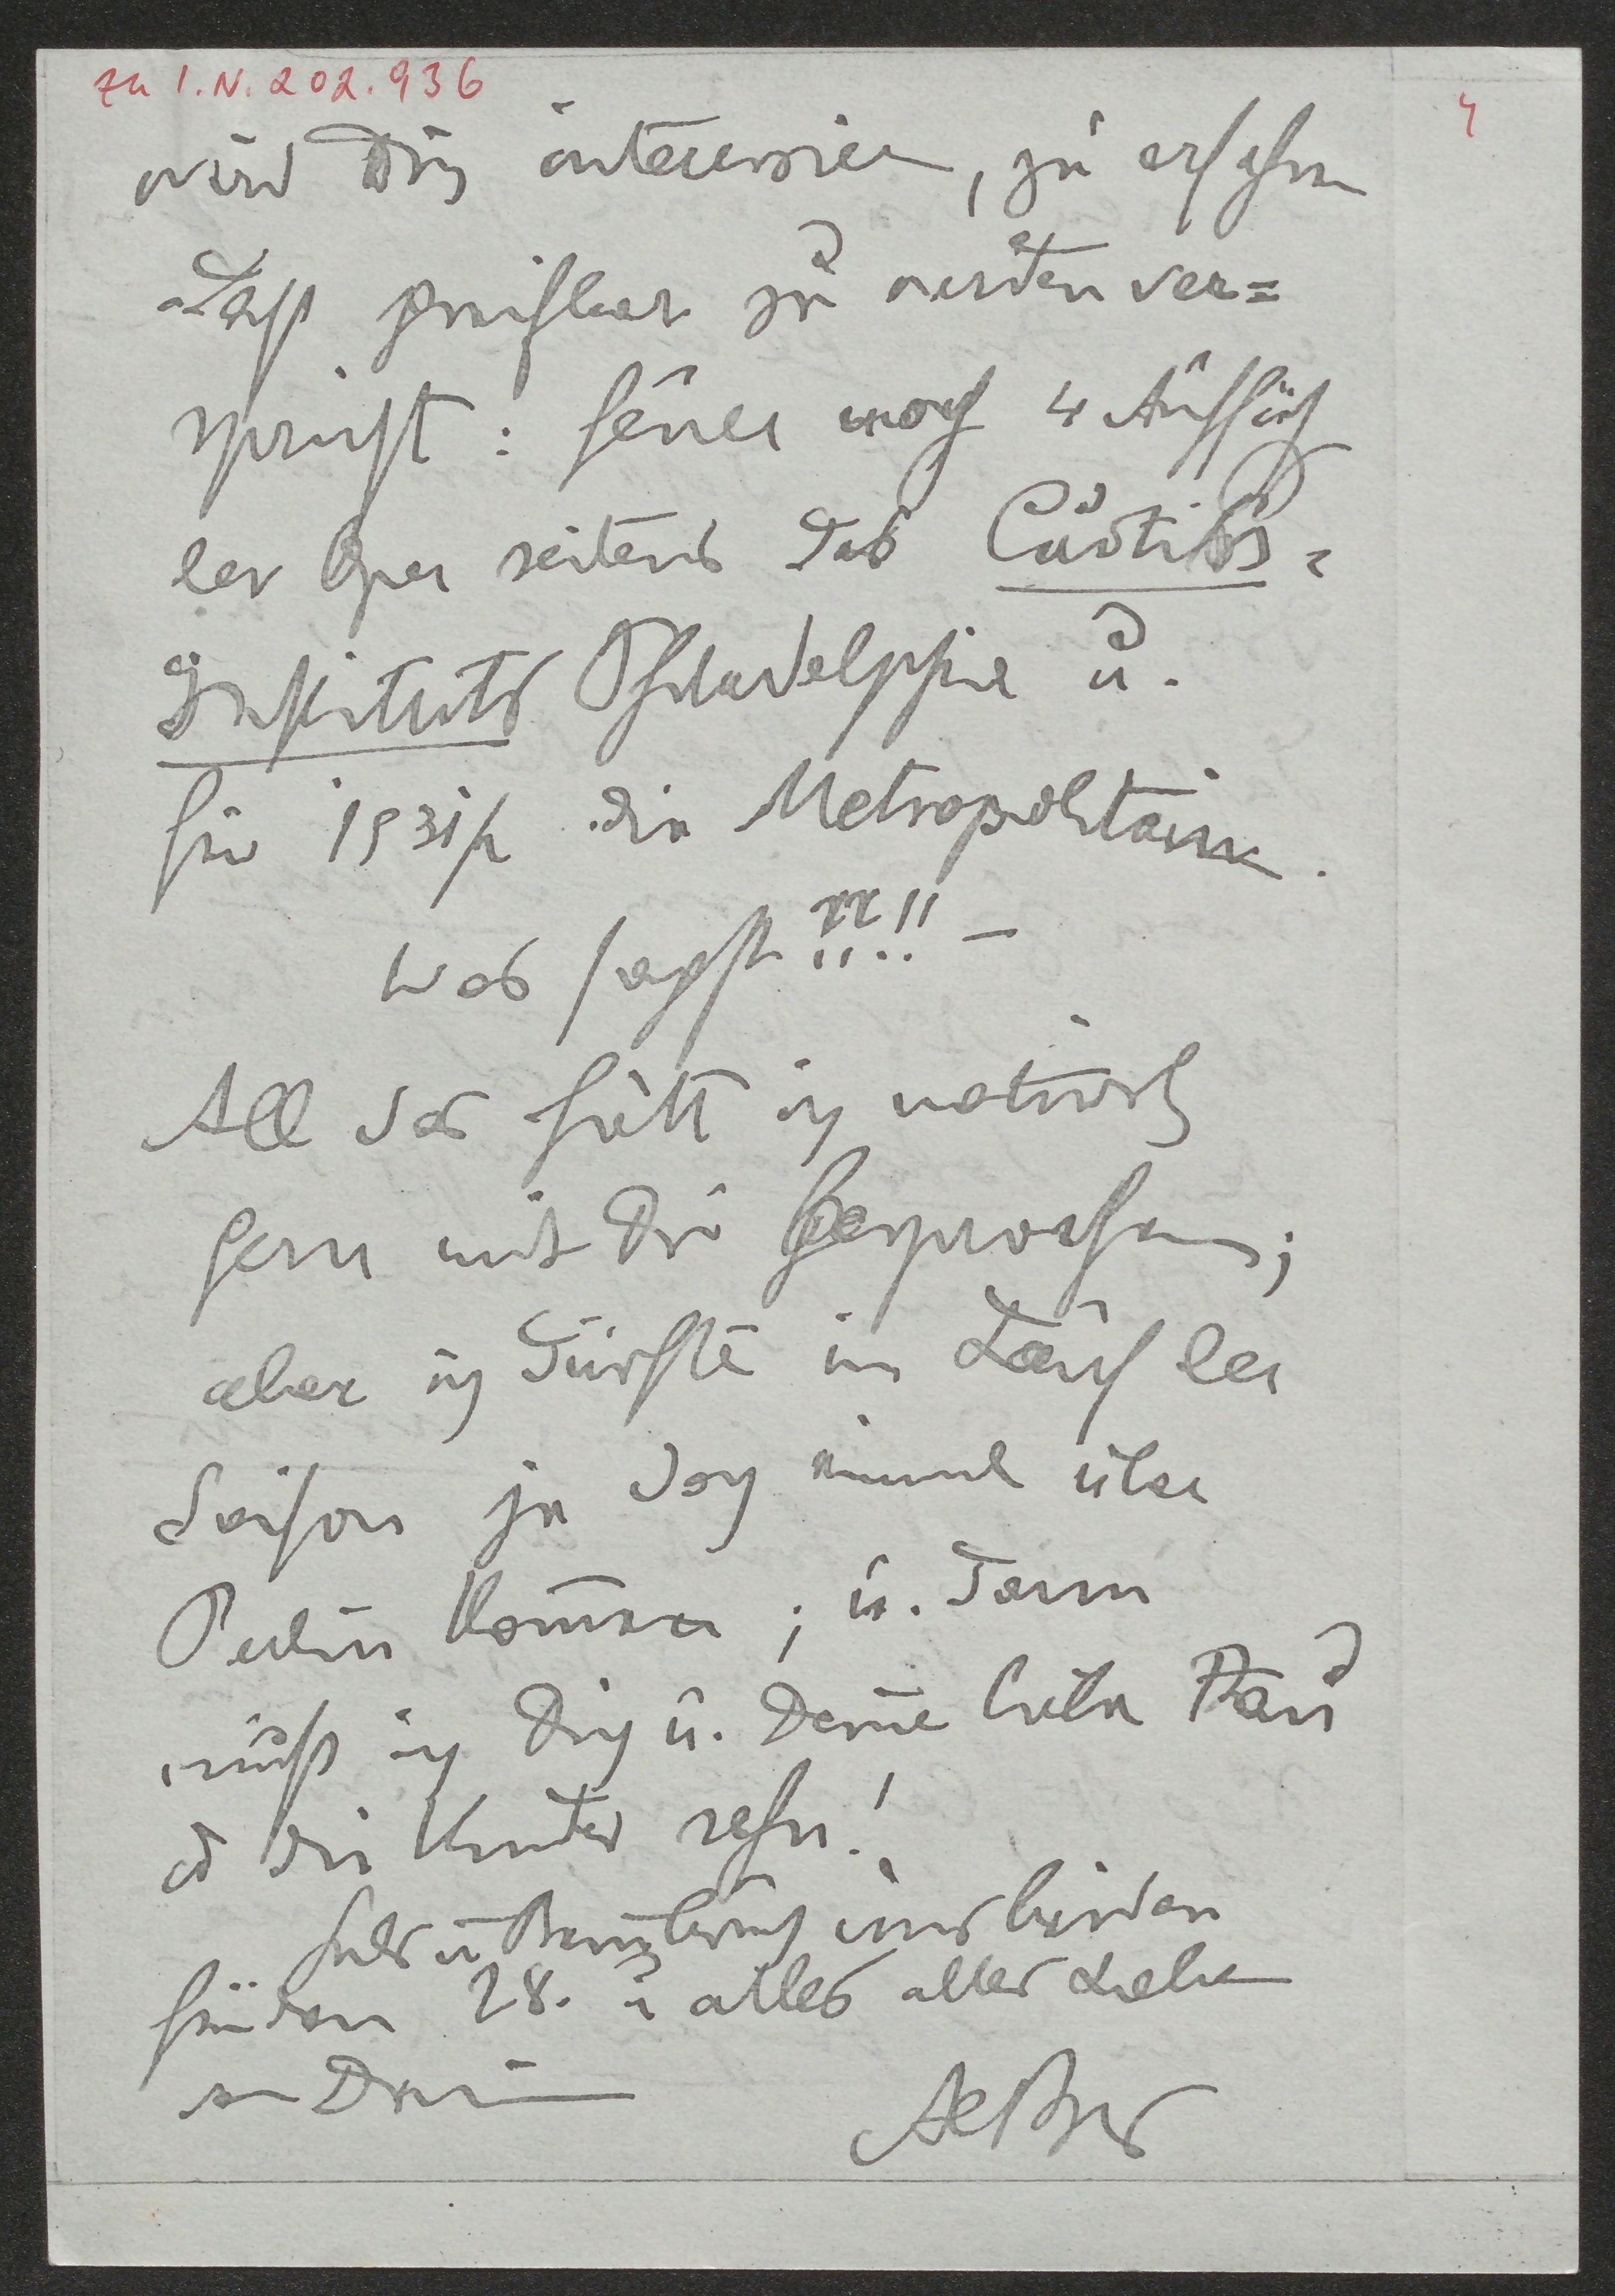 zu I.N. 202.936
4
wird Dich interessieren, zu erfahren
dass zu werden ver=
spricht: heuer noch 4 Aufführ
der Oper seitens des Curtiss=
Instituts Philadelphia u.
für 1931/2 die Metropolitain.
Was sagst??!!!! –
All das hätt ich natürlich
gern mit Dir besprochen;
aber ich dürfte im Lauf der
Saison ja doch einmal über
Berlin kommen; u. dann
muß ich Dich u. Deine liebe Frau
u die Kinder sehn!
für den 28. u alles alles Liebe
von Deinem